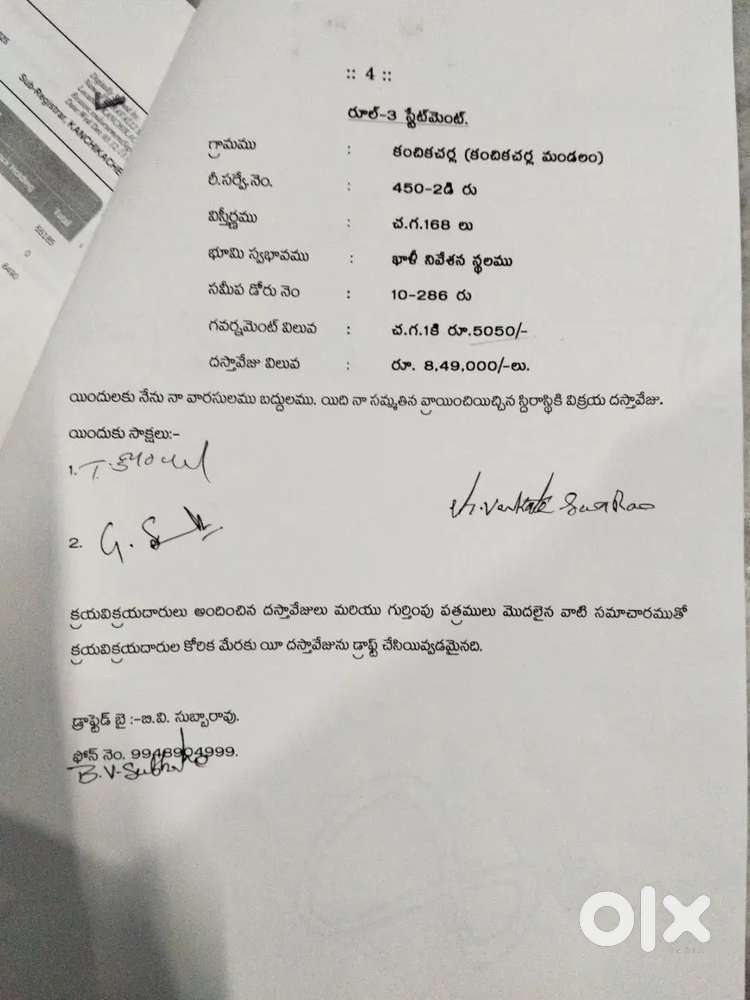 :: 4 ::
రూల్-3 స్టేట్‌మెంట్.
గ్రామము : కంచికచర్ల (కంచికచర్ల మండలం)
రీ.సర్వే.నెం. : 450-2డి రు
విస్తీర్ణము : చ.గ.168 లు
భూమి స్వభావము : ఖాళీ నివేశన స్థలము
సమీప డోరు నెం : 10-286 రు
గవర్నమెంట్ విలువ : చ.గ.1కి రూ.5050/-
దస్తావేజు విలువ : రూ. 8,49,000/-లు.
యిందులకు నేను నా వారసులము బద్దులము. యిది నా సమ్మతిన వ్రాయించియిచ్చిన స్దిరాస్థికి విక్రయ దస్తావేజు.
యిందుకు సాక్షలు:-
1. T.
2. G.
క్రయవిక్రయదారులు అందించిన దస్తావేజులు మరియు గుర్తింపు పత్రములు మొదలైన వాటి సమాచారముతో
క్రయవిక్రయదారుల కోరిక మేరకు యీ దస్తావేజును డ్రాఫ్ట్ చేసియివ్వడమైనది.
డ్రాఫ్టెడ్ బై :-బి.వి. సుబ్బారావు.
ఫోన్ నెం. 9948904999.
B.V.
Sub-Registrar, KANCHIKACHE
Total
58185
0
6490
olx